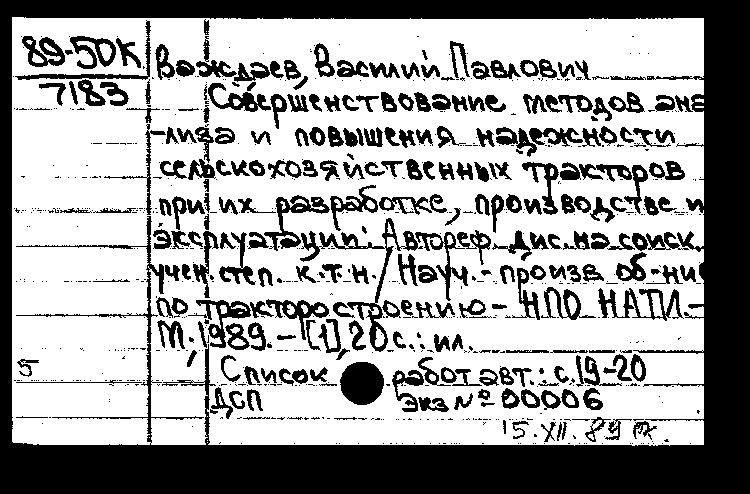 89-50К
7183
Важдаев, Василий Павлович
Совершенствование методов ана
-лиза и повышения надежности
сельскохозяйственных тракторов
при их разработке, производстве и
эксплуатации: Автореф. дис. на соиск.
учен. степ. к.т.н. / Науч.-произв. об-ние
по тракторостроению - НПО НАТИ.-
М., 1989. - [1], 20 с.: ил.
5
Список работ авт.: с. 19-20
ДСП Экз № 00006
15.XII.89